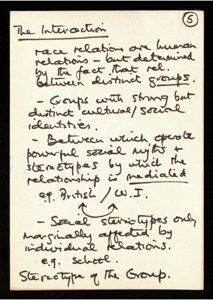 5
The Interaction
race relations are human
relations - but determined
by the fact that rel.
between distinct groups.
- Groups with strong but
distinct cultural/social
identities.
- Between which operate
powerful social myths +
stereotypes by which the
relationship is mediated
e.g. British / W.I.
- Social stereotypes only
marginally affected by
individual relations.
e.g. school.
Stereotype of the Group.